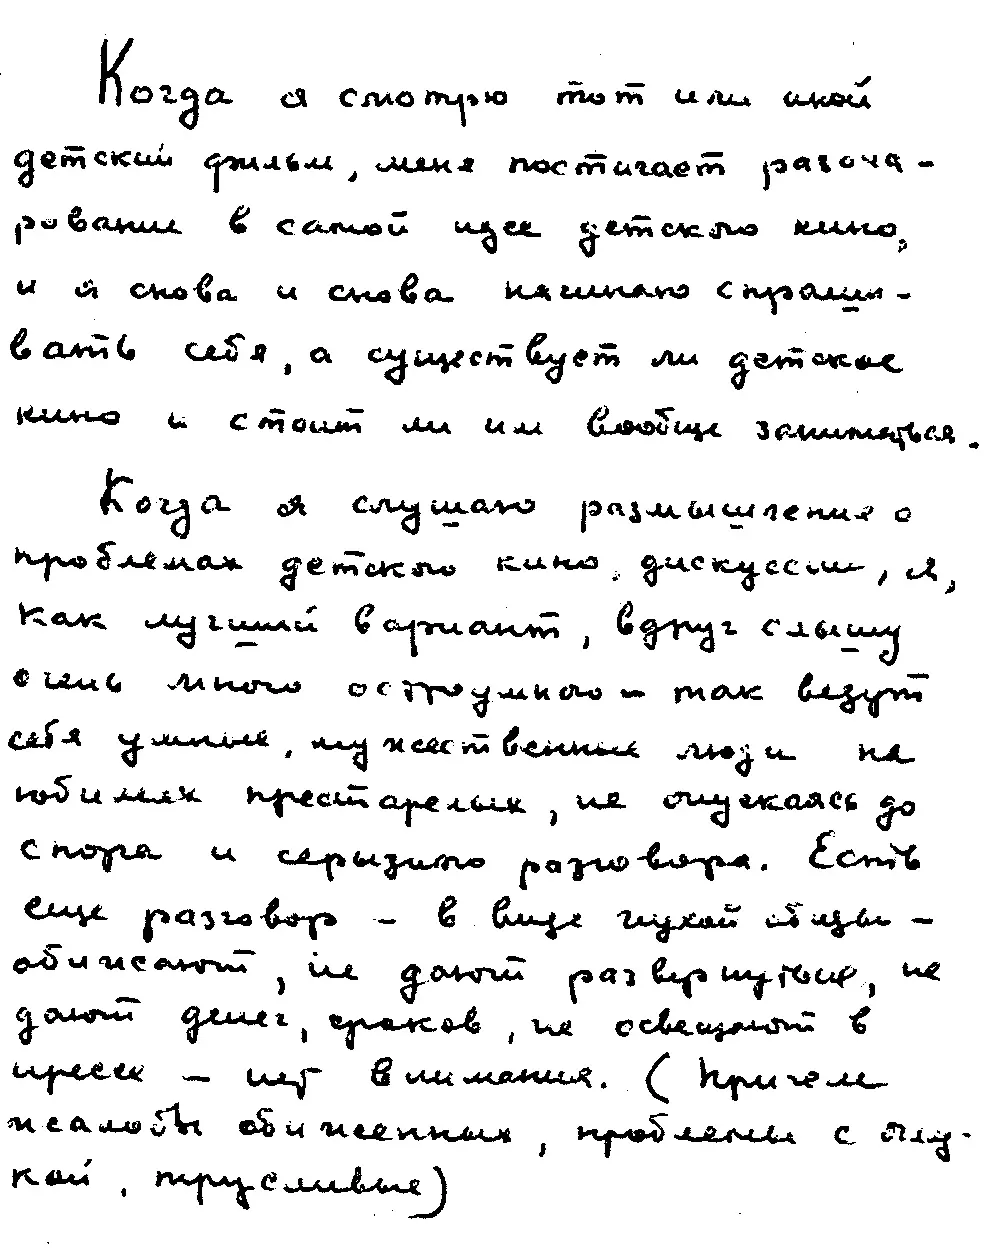 Когда я смотрю тот или иной
детский фильм, меня постигает разоча-
рование в самой идее детского кино,
и я снова и снова начинаю спраши-
вать себя, а существует ли детское
кино и стоит ли им вообще заниматься.
Когда я слушаю размышления о
проблемах детского кино, дискуссии, я,
как лучший вариант, вдруг слышу
очень много остроумного – так ведут
себя умные, мужественные люди на
юбилеях престарелых, не опускаясь до
спора и серьезного разговора. Есть
еще разговор – в виде глухой обиды –
обижают, не дают развернуться, не
дают денег, сроков, не освещают в
прессе – нет внимания. (Причем
жалобы обиженных, проблемы с
кой, трусливые)